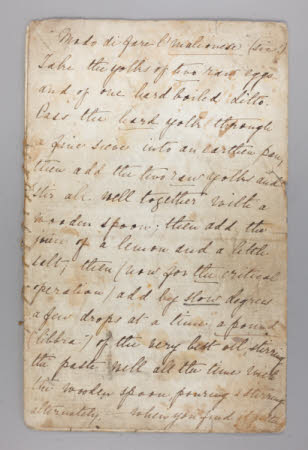 Modo di fare l' maionese (sic)
Take the yolks of two raw eggs
and of one hard boiled ditto.
Pass the hard yolk through
a fine sieve into an earthen pan,
then add the two raw yolks and
stir all well together with a
wooden spoon; then add the
juice of a lemon and a little
salt; then (now for the critical
operation) add by slow degrees
a few drops at a time, "a pound
(libbra") of the very best oil, stirring
the paste well all the time with
the wooden spoon, pouring & stirring
alternately — when you find it gets